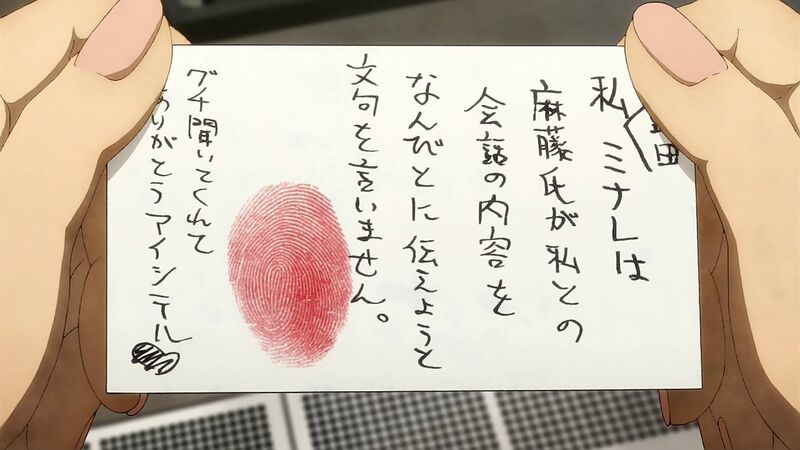 私ミナレは
田
麻藤氏が私との
会話の内容を
なんびとに伝えようと
文句を言いません。
グチ聞いてくれて
ありがとうアイシテル